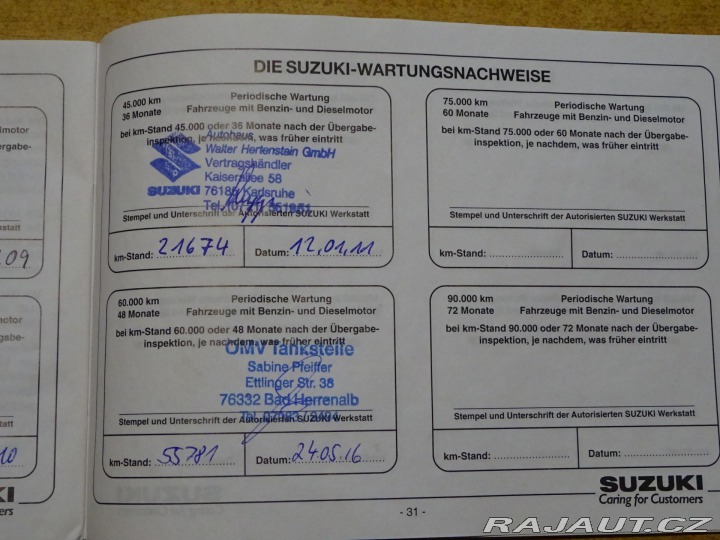 DIE SUZUKI-WARTUNGSNACHWEISE
45.000 km
36 Monate
Periodische Wartung
Fahrzeuge mit Benzin- und Dieselmotor
bei km-Stand 45.000 oder 36 Monate nach der Übergabe-
inspektion, je nachdem, was früher eintritt
Autohaus
Walter Hertenstein GmbH
Vertragshändler
Kaiserallee 58
SUZUKI 76185 Karlsruhe
Stempel und Unterschrift der Autorisierten SUZUKI Werkstatt
km-Stand: 21674
Datum: 12.01.11
60.000 km
48 Monate
Periodische Wartung
Fahrzeuge mit Benzin- und Dieselmotor
bei km-Stand 60.000 oder 48 Monate nach der Übergabe-
inspektion, je nachdem, was früher eintritt
OMV Tankstelle
Sabine Pfeiffer
Ettlinger Str. 38
76332 Bad Herrenalb
Stempel und Unterschrift der Autorisierten SUZUKI Werkstatt
km-Stand: 55781
Datum: 24.05.16
75.000 km
60 Monate
Periodische Wartung
Fahrzeuge mit Benzin- und Dieselmotor
bei km-Stand 75.000 oder 60 Monate nach der Übergabe-
inspektion, je nachdem, was früher eintritt
Stempel und Unterschrift der Autorisierten SUZUKI Werkstatt
km-Stand:
Datum:
90.000 km
72 Monate
Periodische Wartung
Fahrzeuge mit Benzin- und Dieselmotor
bei km-Stand 90.000 oder 72 Monate nach der Übergabe-
inspektion, je nachdem, was früher eintritt
Stempel und Unterschrift der Autorisierten SUZUKI Werkstatt
km-Stand:
Datum:
SUZUKI
Caring for Customers
- 31 -
RAJAUT.CZ